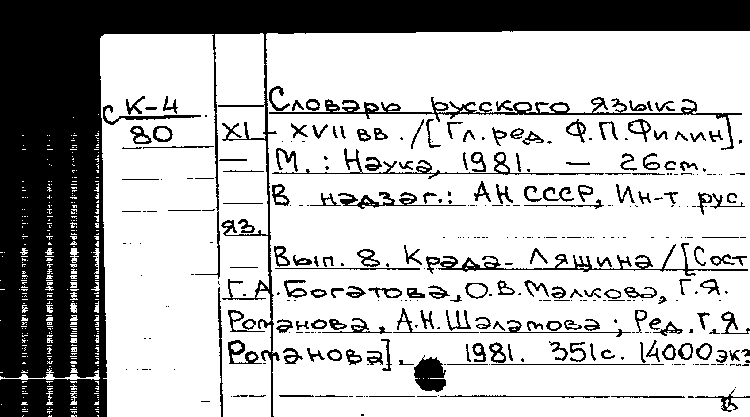 С К-4
80
Словарь русского языка
XI - XVII вв. / [Гл. ред. Ф.П.Филин].
— М. : Наука, 1981. — 26 см.
В надзаг.: АН СССР, Ин-т рус.
яз.
Вып. 8. Крада - Лящина / [Сост
Г.А.Богатова, О.В.Малкова, Г.Я.
Романова, А.Н.Шаламова ; Ред. Г.Я.
Романова]. 1981. 351с. 14000экз